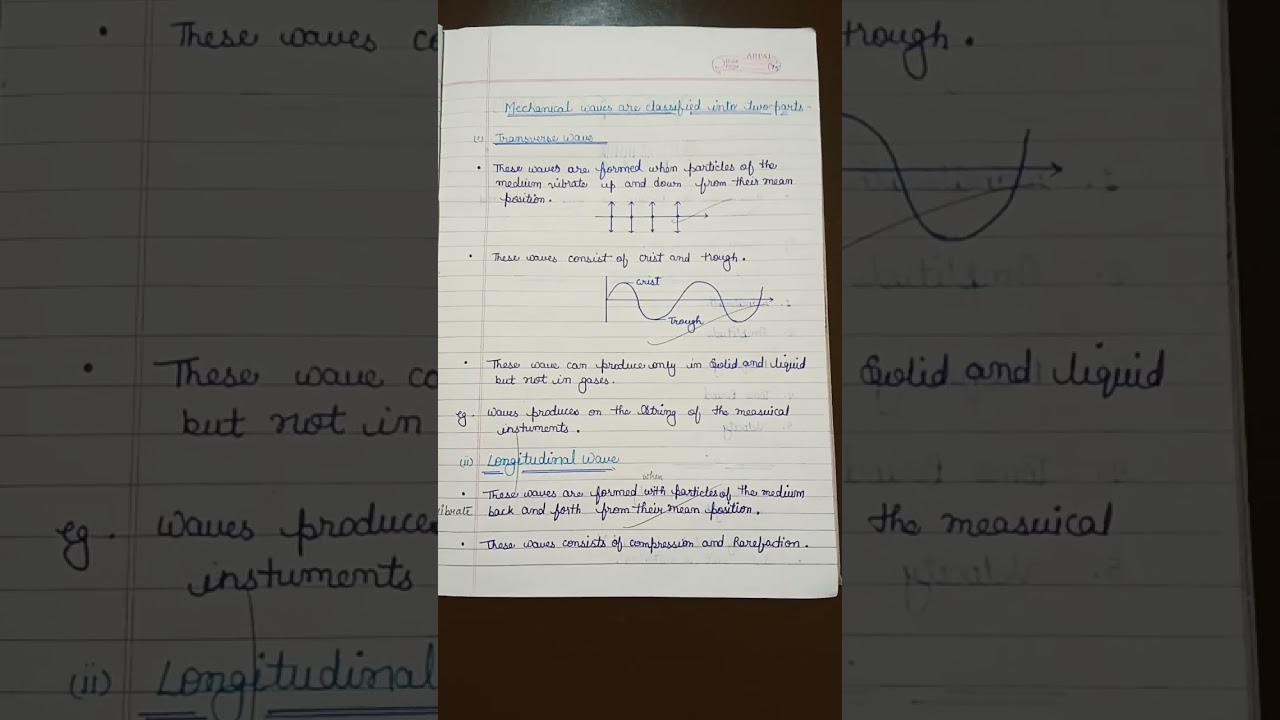 Mechanical waves are classified into two parts-
(i) Transverse wave
• These waves are formed when particles of the
medium vibrate up and down from their mean
position.
• These waves consist of crist and trough.
crist
Trough
• These wave can produce only in Solid and liquid
but not in gases.
Eg. waves produces on the String of the measuical
instuments.
(ii) Longitudinal Wave
when
• These waves are formed with particles of the medium
vibrate back and forth from their mean position.
• These waves consists of compression and Rarefaction.